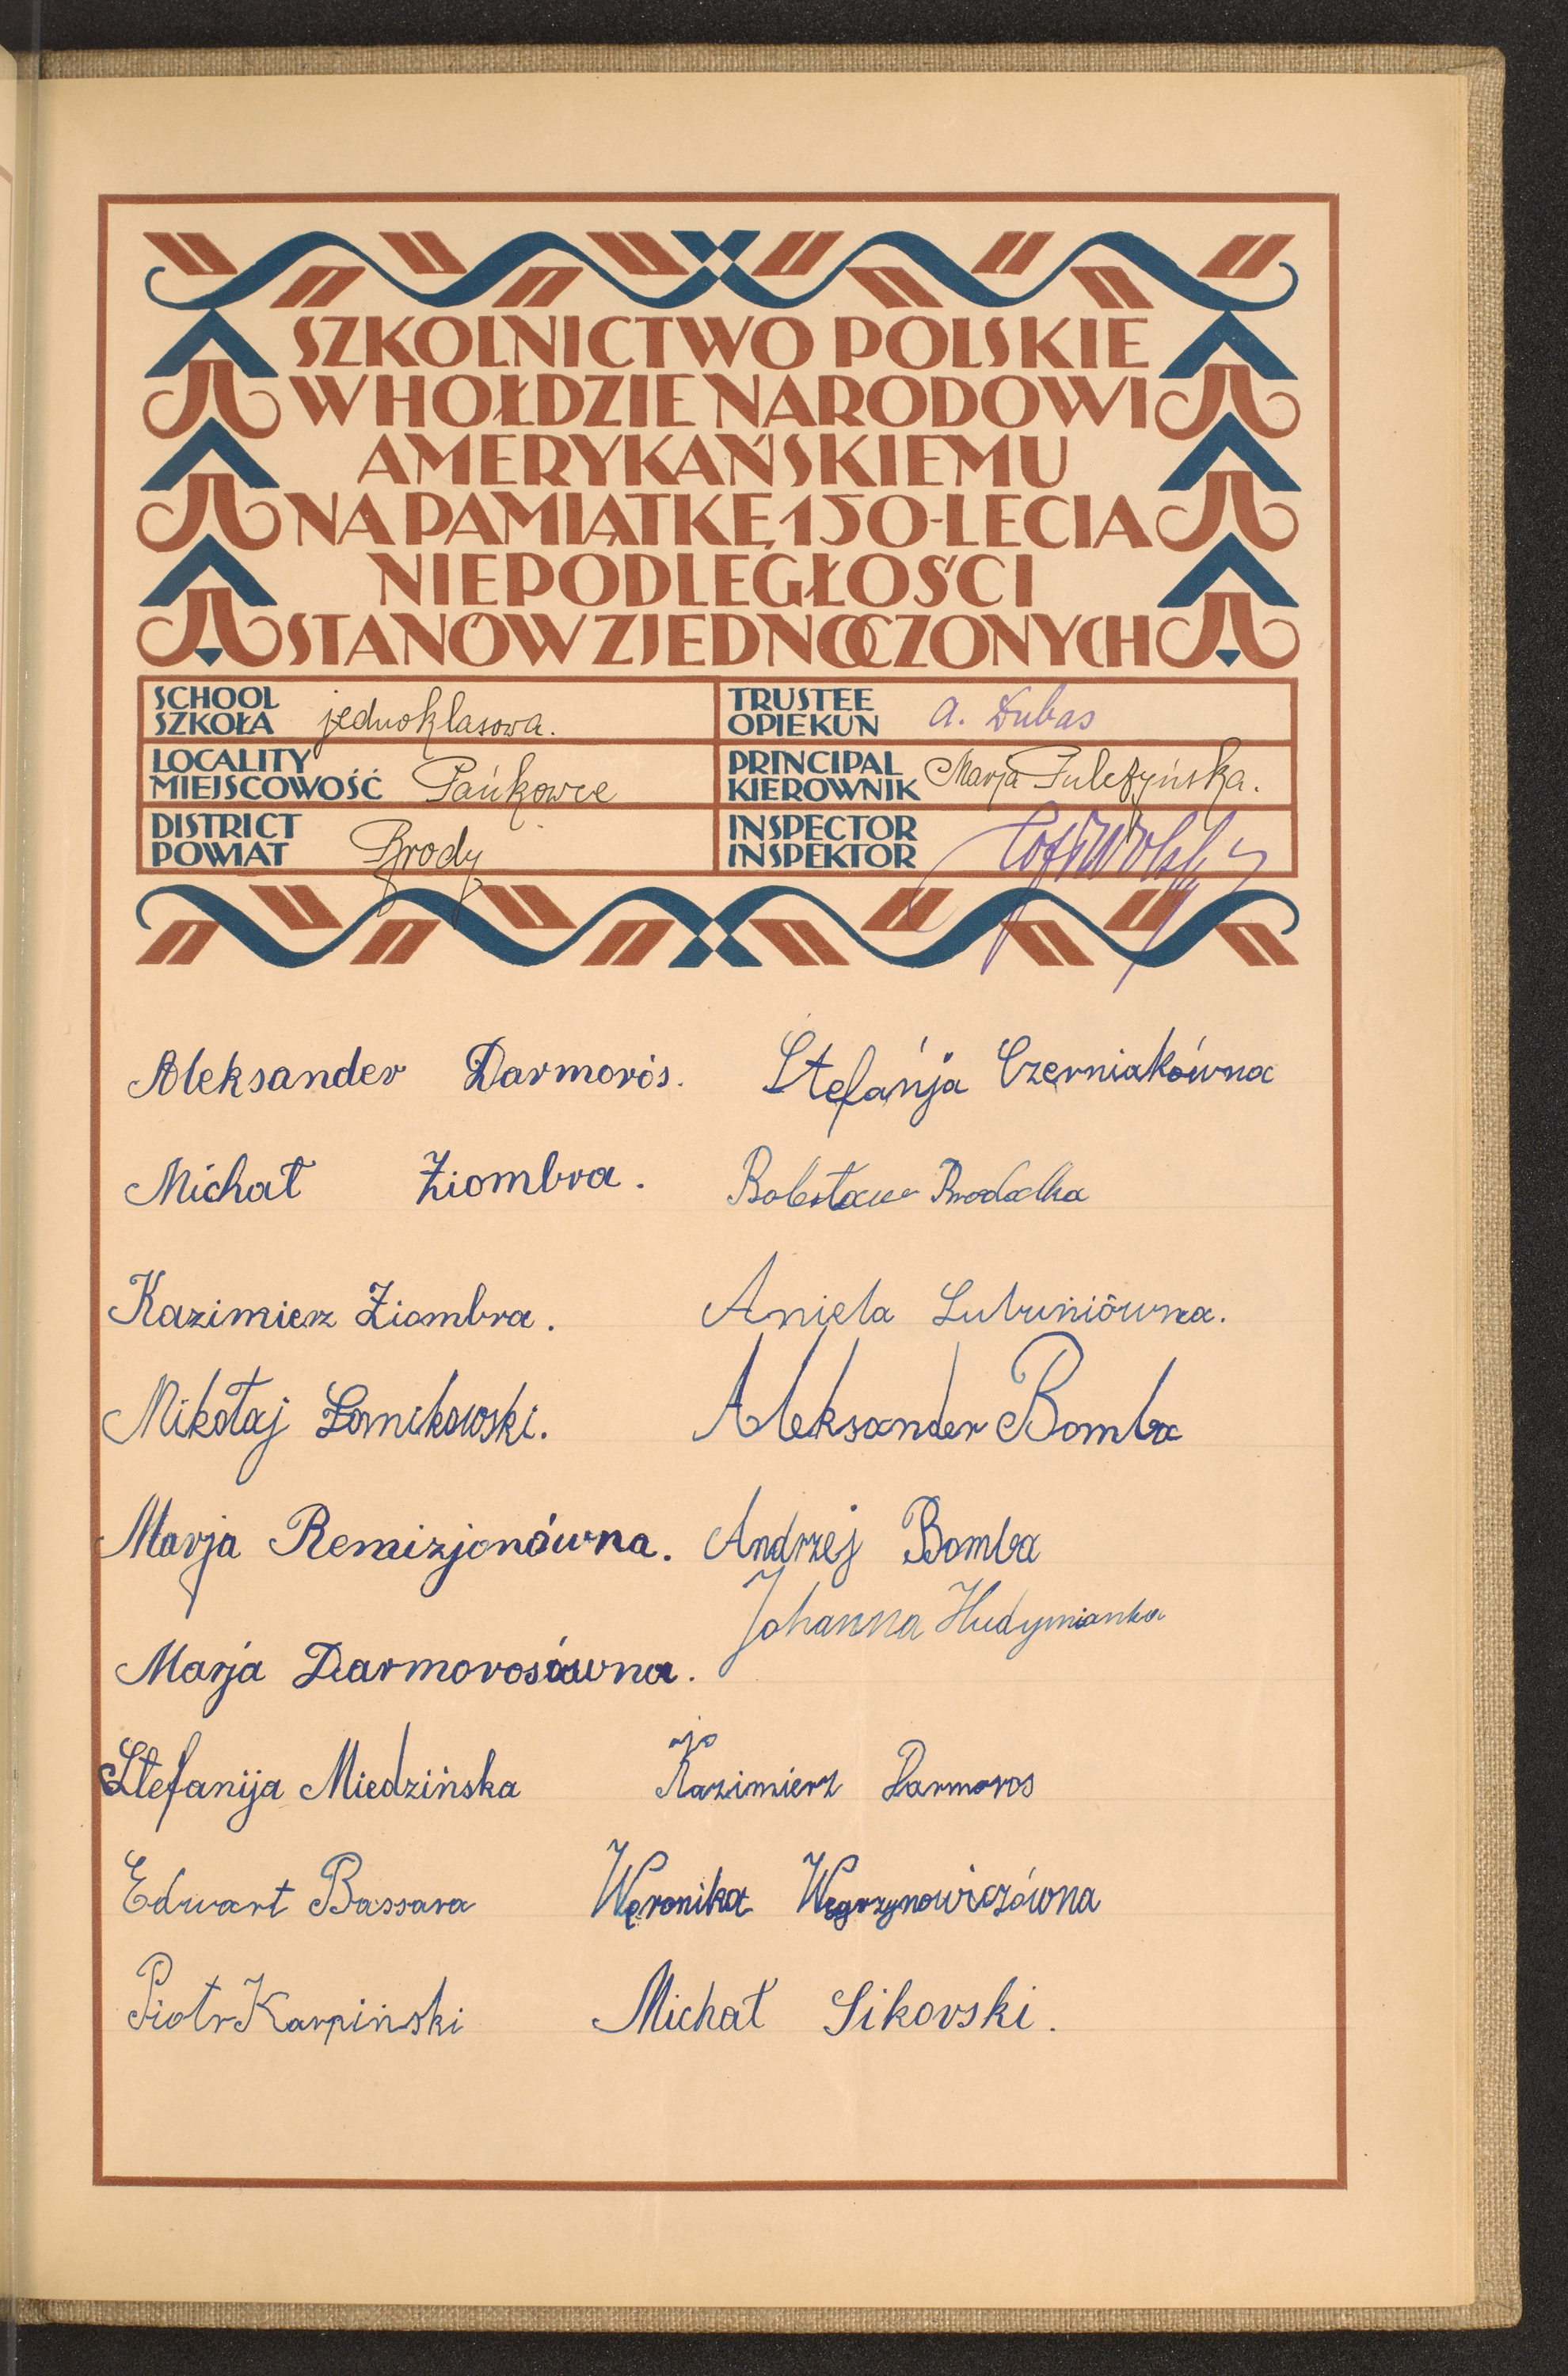 SZKOLNICTWO POLSKIE
W HOŁDZIE NARODOWI
AMERYKAŃSKIEMU
NA PAMIĄTKĘ 150-LECIA
NIEPODLEGŁOŚCI
STANÓW ZJEDNOCZONYCH
SCHOOL
SZKOŁA jednoklasowa.
TRUSTEE
OPIEKUN A. Dubas
LOCALITY
MIEJSCOWOŚĆ Pańkowce
PRINCIPAL
KIEROWNIK Marja Julczyńska.
DISTRICT
POWIAT Brody
INSPECTOR
INSPEKTOR
Aleksander Darmorós. Stefánja Czerniakówna
Michał Ziombra. Bolesław
Kazimierz Ziombra. Aniela Lubuniówna.
Mikołaj Łomikowski. Aleksander Bomba
Marja Remizjonówna. Andrzej Bomba
Johanna Hudymianka
Marja Darmorosówna.
Stefanija Miedzińska Kazimierz Darmoros
Edwart Bassara Weronika Węgrzynowiczówna
Piotr Karpiński Michał Sikovski.